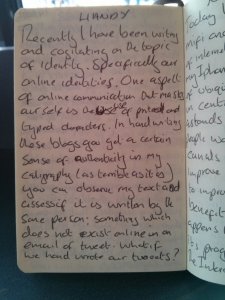 HANDY
Recently I have been writing
and cogitating on the topic
of identity. Specifically our
online identities. One aspect
of online communication that masks
our self is the use of printed and
typed characters. In hand writing
these blogs you get a certain
sense of authenticity in my
caligraphy (as terrible as it is)
you can observe my text and
assess if it is written by the
same person: something which
does not exist online in an
email of tweet. What if
we hand wrote our tweets?
Today I
mifi and
of interne
my Iphon
in cent
astounds
improve
to improv
benefit